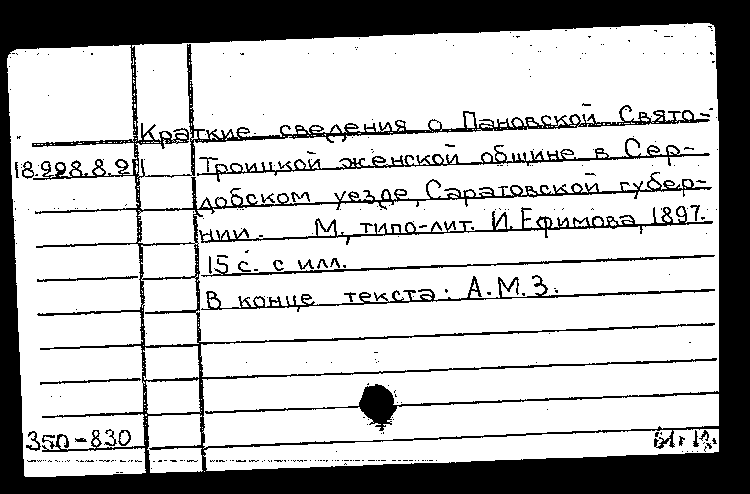 Краткие сведения о Пановской Свято-
18.228.8.91 Троицкой женской общине в Сер-
добском уезде, Саратовской губер-
нии. М., типо-лит. И. Ефимова, 1897.
15 с. с илл.
В конце текста: А.М.З.
350-830